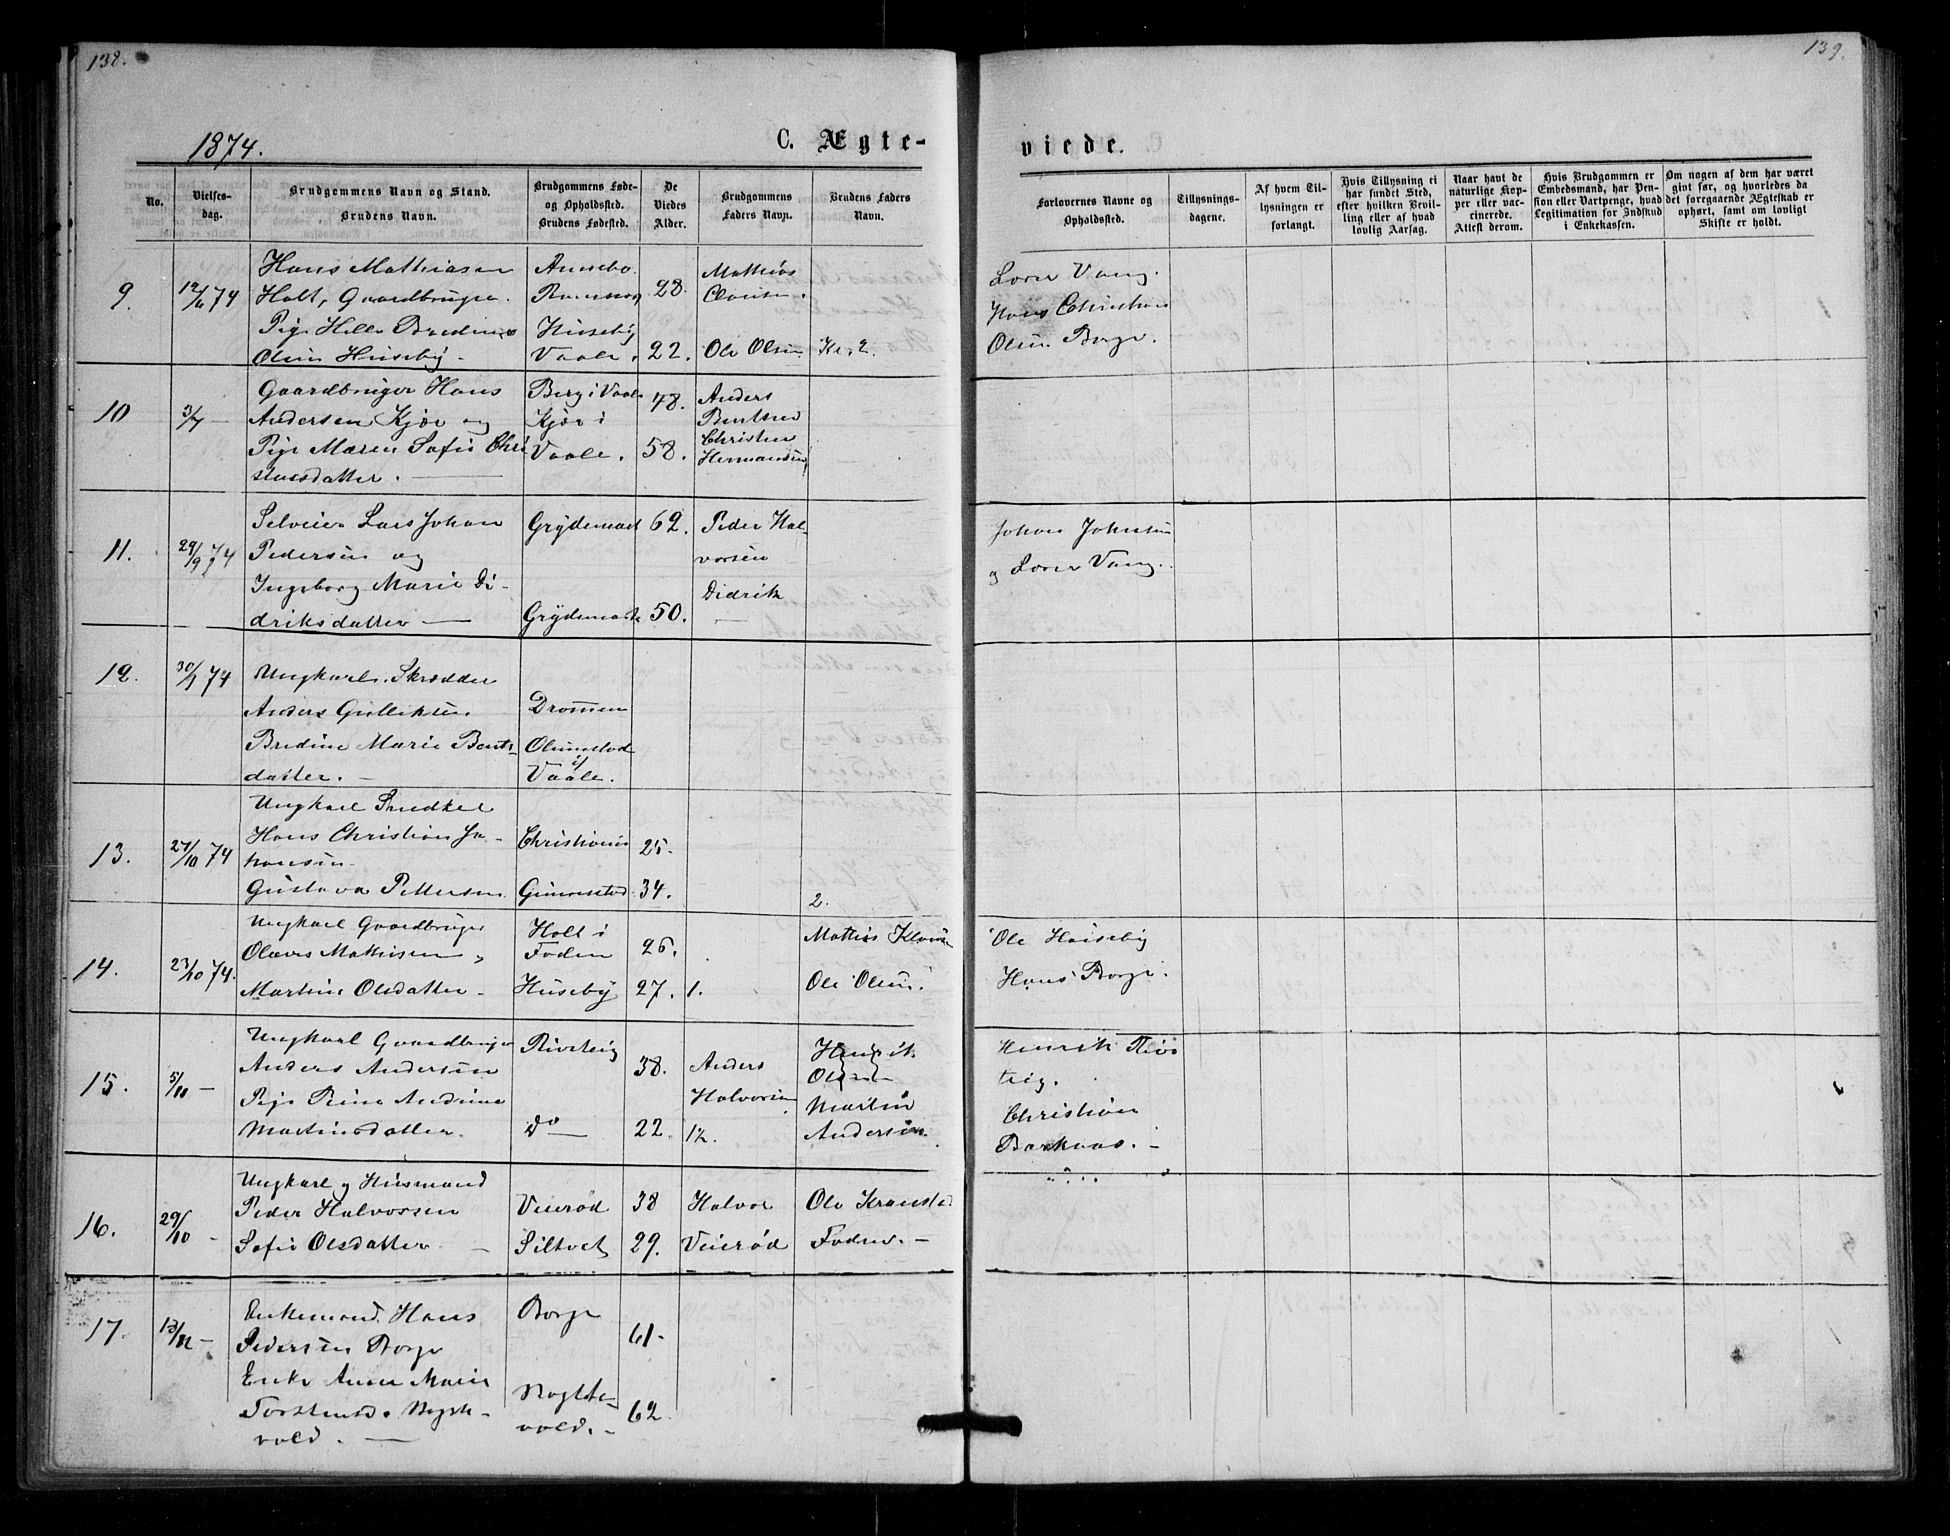 138.
139.
1874.
C. Ægte-
viede.
No.
Vielses-
dag.
Brudgommens Navn og Stand.
Brudens Navn.
Brudgommens Føde-
og Opholdssted.
Brudens Fødested.
De
Viedes
Alder.
Brudgommens
Faders Navn.
Brudens Faders
Navn.
Forlovernes Navne og
Opholdssted.
Tillysnings-
dagene.
Af hvem Til-
lysningen er
forlangt.
Hvis Tillysning ei
har fundet Sted,
efter hvilken Bevil-
ling eller af hvad
lovlig Aarsag.
Naar havt de
naturlige Kop-
per eller vac-
cinerede.
Attest derom.
Hvis Brudgommen er
Embedsmand, har Pen-
sion eller Vartpenge, hvad
Legitimation for Indskud
i Enkekassen.
Om nogen af dem har været
givt før, og hvorledes da
det foregaaende Ægteskab er
ophørt, samt om lovligt
Skifte er holdt.
9.
12/6 74
Hans Mathiasen
Holt, Gaardbruger
Pige Helle Bredine
Olsen Huseby
Huseby
Vaale.
28.
22.
Mathias
Clausen.
Ole Olsen
Lorer Vang.
Hans Christian
Olsen Borge.
10
3/7 -
Gaardbruger Hans
Andersen Kjær og
Pige Maren Sofie Chri
stiansdatter.
Berg i Vaale
Kjær i
Vaale.
48.
58.
Anders
Bentsen
Christen
Hermansen
11.
29/9 74
Selveier Lars Johan
Pedersen og
Ingeborg Marie Di-
driksdatter
Grydemoet
Grydemoet
62.
50.
Peder Hal-
vorsen
Didrik
Johan Johnsen
og Lorer Vang.
12.
30/9 74
Ungkarl. Skrædder
Anders Gulliksen
Bredine Marie Bents-
datter.
Drammen
Vaale.
13.
27/10 74
Ungkarl Snedker
Hans Christian Jo-
hansen
Gustava Pettersen
Christiania
25.
34.
2.
14.
23/10 74.
Ungkarl Gaardbruger
Olaves Mathisen
Martine Olsdatter
Holt i
Foden
Huseby
26.
27.
1.
Mathis Klausen
Ole Olsen.
Ole Huseby
Hans Borge.
15.
5/10 -
Ungkarl Gaardbruger
Anders Andersen
Pige Andrine
Martinsdatter.
Rivteig
do
38.
22.
Anders
Halvorsen
12.
Henrik
Olsen
Martin
Andersen.
Henrik Riv
teig.
Christian
Barkaas.
16.
29/10 -
Ungkarl og Husmand
Peder Halvorsen
Sofie Olsdatter
Veierød
Siltvet
38
29.
Halvor
Veierød
Ole
17.
Enkemand. Hans
Pedersen Borge
Enke Anne Marie
Borge
61.
62.